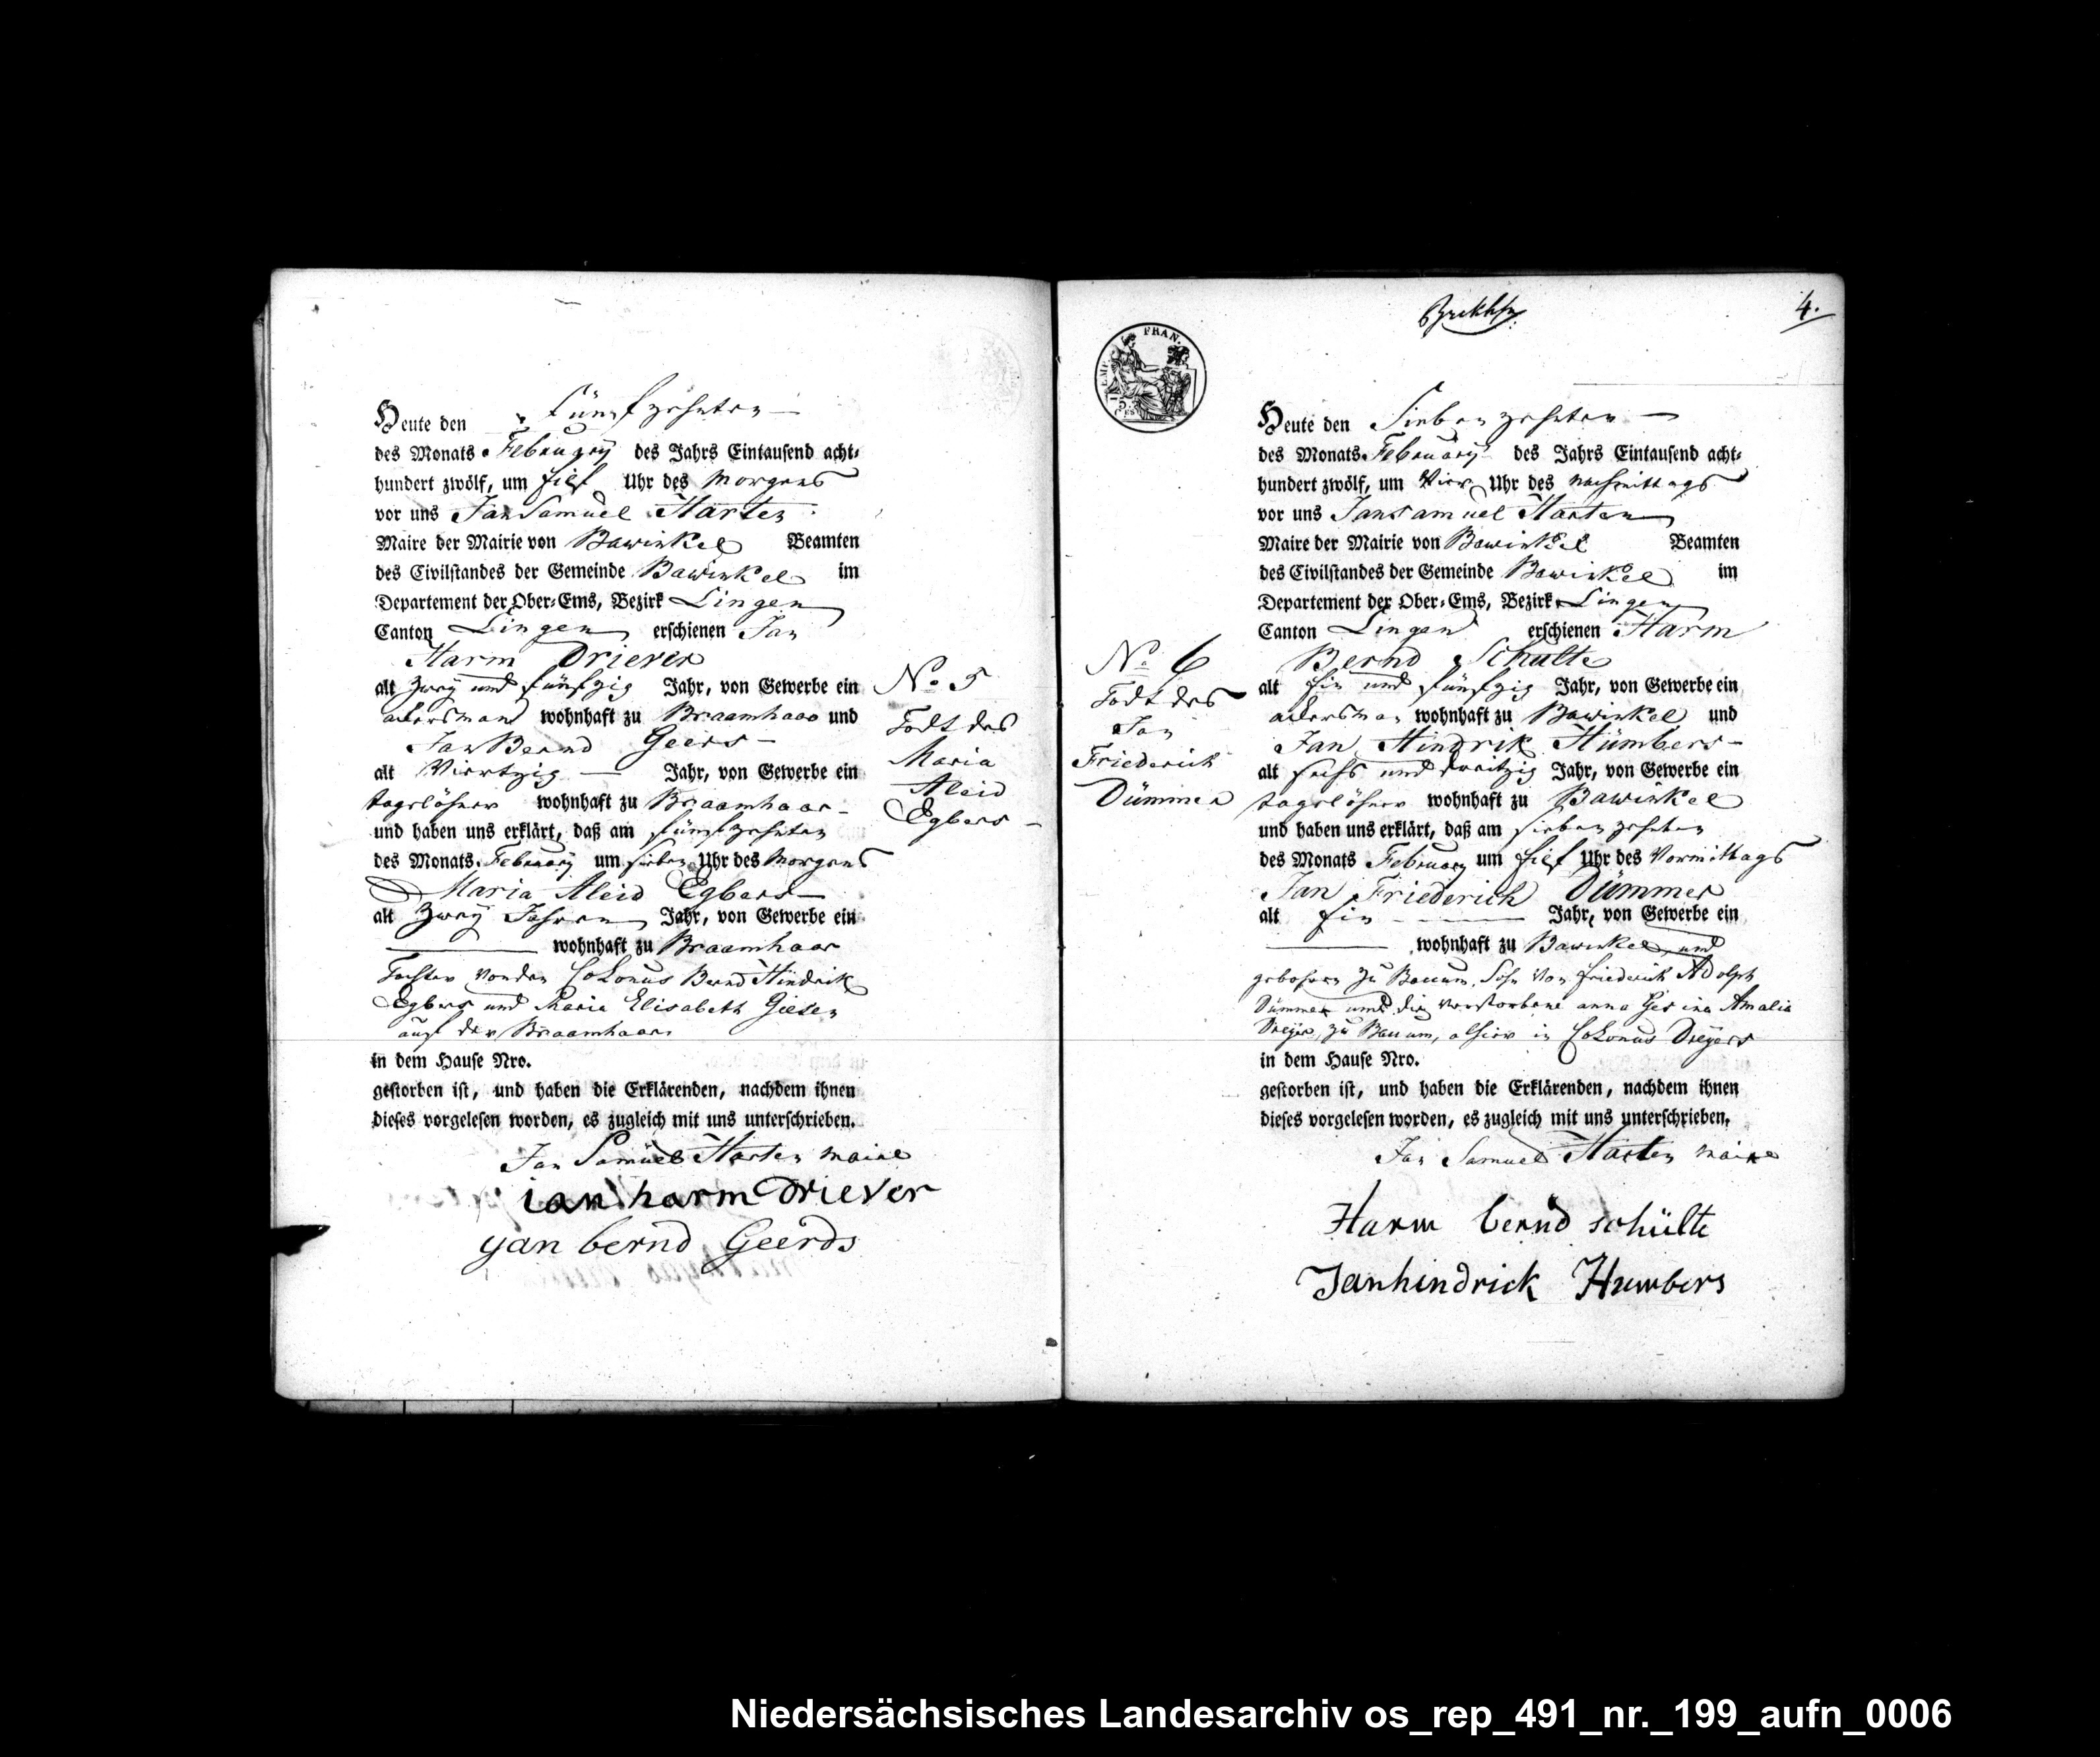 Heute den Fünfzehnten
des Monats February des Jahrs Eintausend acht-
hundert zwölf, um Eilf Uhr des Morgens
vor uns Jan Samuel Harten
Maire der Mairie von Bawinkel Beamten
des Civilstandes der Gemeinde Bawinkel im
Departement der Ober-Ems, Bezirk Lingen
Canton Lingen erschienen Jan
Harm Driever
alt Zwey und fünfzig Jahr, von Gewerbe ein
ackersmann wohnhaft zu Braamhaar und
Jan Bernd Geers
alt Viertzig Jahr, von Gewerbe ein
tagelöhner wohnhaft zu Braamhaar
und haben uns erklärt, daß am fünfzehnten
des Monats February um sieben Uhr des Morgens
Maria Aleid Egbers
alt Zwey Jahren Jahr, von Gewerbe ein
wohnhaft zu Braamhaar
Tochter von den Colonus Bernd Hindrik
Egbers und Maria Elisabeth Giesen
auf der Braamhaar
in dem Hause Nro.
gestorben ist, und haben die Erklärenden, nachdem ihnen
dieses vorgelesen worden, es zugleich mit uns unterschrieben.
Jan Samuel Harten maire
ian harm Driever
yan bernd Geerds
No 5
Todt des
Maria
Aleid
Egbers
4.
FRAN.
No 6
Todt des
Jan
Friederich
Dümmer
Heute den Siebenzehnten
des Monats February des Jahrs Eintausend acht-
hundert zwölf, um Vier Uhr des nachmittags
vor uns Jan Samuel Harten
Maire der Mairie von Bawinkel Beamten
des Civilstandes der Gemeinde Bawinkel im
Departement der Ober-Ems, Bezirk Lingen
Canton Lingen erschienen Harm
Bernd Schulte
alt Ein und fünfzig Jahr, von Gewerbe ein
ackersman wohnhaft zu Bawinkel und
Jan Hindrik Hümbers
alt sechs und dreitzig Jahr, von Gewerbe ein
tagelöhner wohnhaft zu Bawinkel
und haben uns erklärt, daß am siebenzehnten
des Monats February um Eilf Uhr des Vormittags
Jan Friederich Dümmer
alt Ein Jahr, von Gewerbe ein
wohnhaft zu Bawinkel und
gebohren zu Baccum, Sohn von Friederich Adolph
Dümmer und die verstorbene anna Gesina Amalia
Dreyer, zu Baccum, alhier in Colonus Dreyers
in dem Hause Nro.
gestorben ist, und haben die Erklärenden, nachdem ihnen
dieses vorgelesen worden, es zugleich mit uns unterschrieben.
Jan Samuel Harten maire
Harm bernd schülte
Janhindrick Humbers
Niedersächsisches Landesarchiv os_rep_491_nr._199_aufn_0006